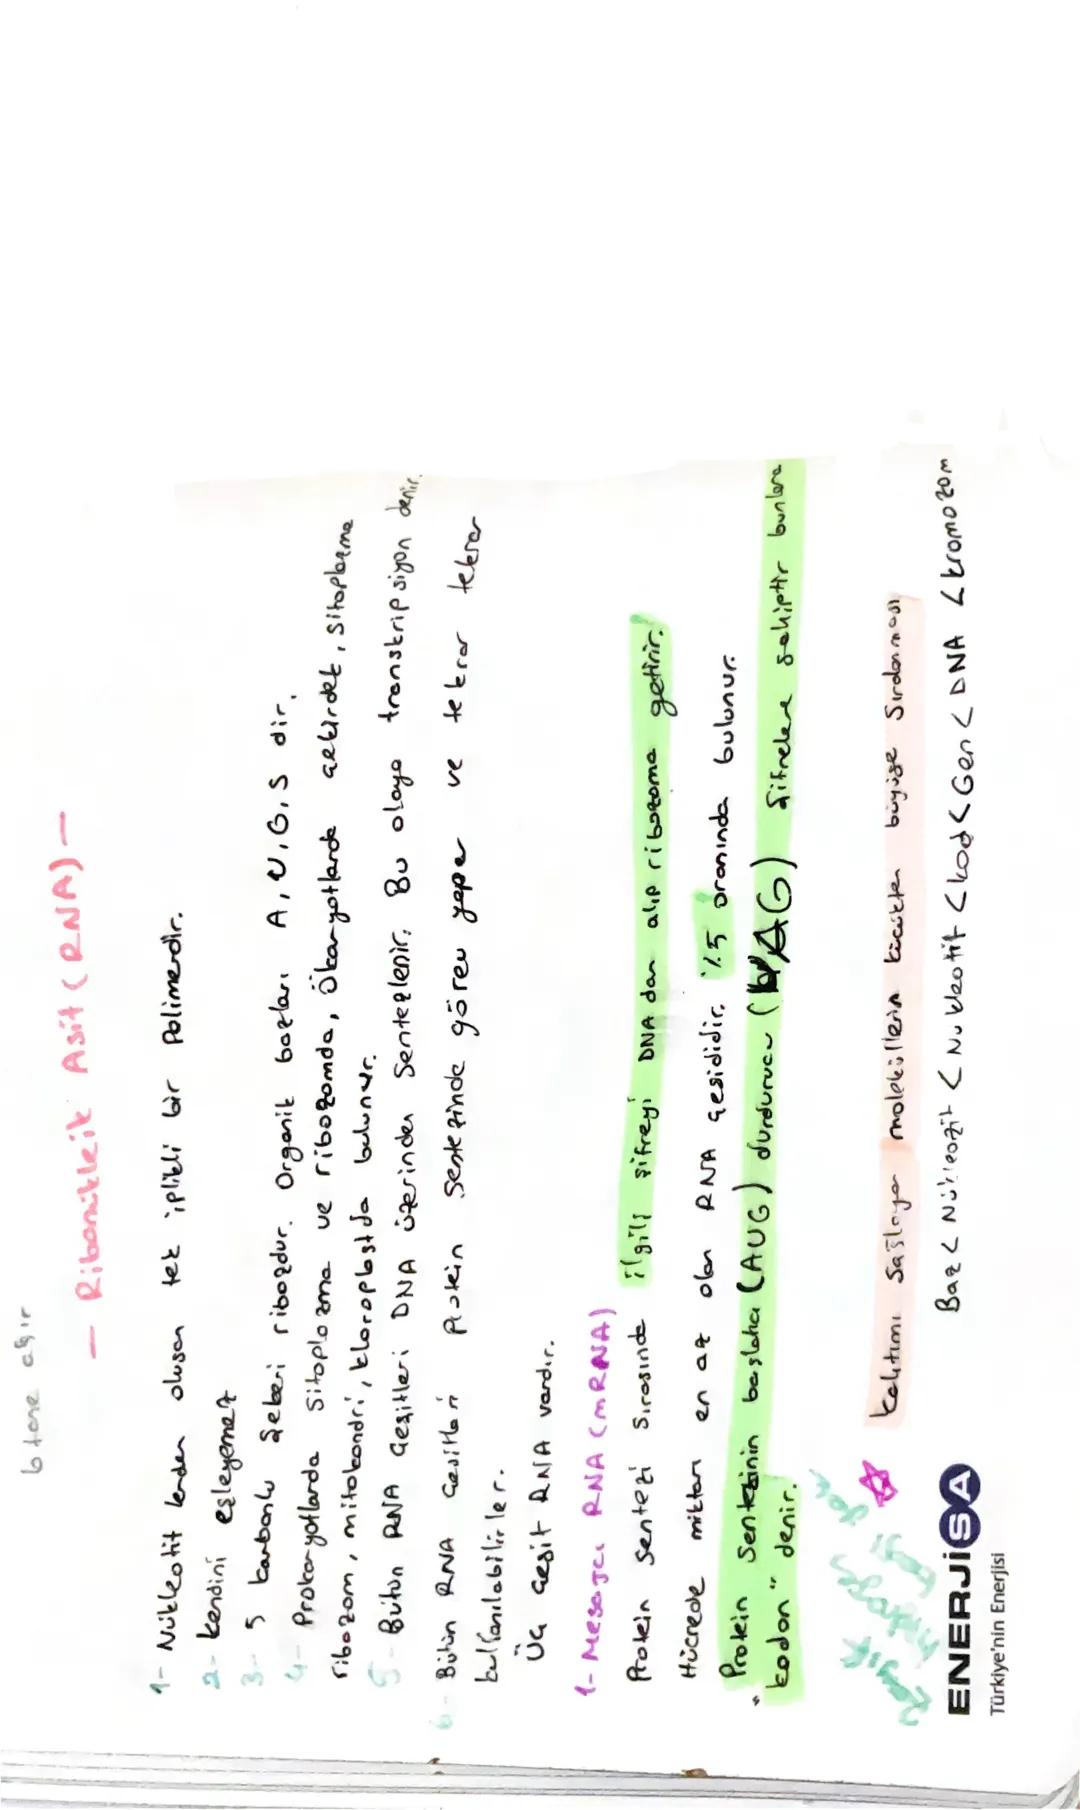 6 tane ağır
— Ribonükleik Asit (RNA) —
1- Nükleotit lerden oluşan tek iplikli bir Polimerdir.
2- kendini eşleyemez
3- 5 karbonlu Şekeri ribozdur. Organik bazları A, U, G, S dir.
4- Prokaryotlarda sitoplazma ve ribozomda, ökaryotlarda çekirdek, sitoplazma
ribozom, mitokondri, kloroplastda bulunur.
5- Bütün RNA Çeşitleri DNA üzerinden Sentezlenir. Bu olaya transkripsiyon denir.
6- Bütün RNA Çeşitleri Protein Sentezinde görev yapar ve tekrar tekrar
kullanılabilirler.
Üç Çeşit RNA vardır.
1- Mesajcı RNA (mRNA)
Protein sentezi sırasında ilgili şifreyi DNA dan alıp ribozoma getirir.
Hücrede miktarı en az olan RNA çeşididir. %5 oranında bulunur.
Protein Sentezinin başlatıcı (AUG) durdurucu (UAG) Şifrelere sahiptir bunlara
"kodon" denir.
kalıtımı Sağlayan moleküllerin küçükten büyüğe Sıralanması
Baz < Nükleozit < Nukleotit < kod < Gen < DNA < kromozom
ENERJİSA
Türkiye'nin Enerjisi